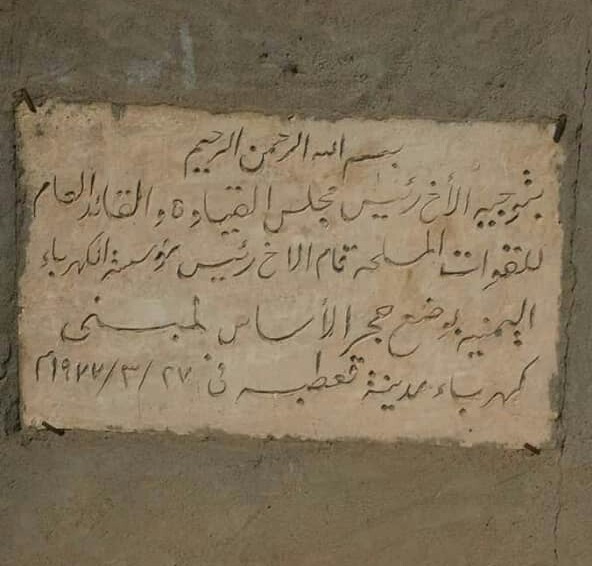 بسم الله الرحمن الرحيم
بتوجيه الأخ رئيس مجلس القيادة والقائد العام
للقوات المسلحه قام الاخ رئيس مؤسسة الكهرباء
اليمنيه بوضع حجر الأساس لمبنى
كهرباء مدينة قعطبه في ٢٧/٣/١٩٧٧م